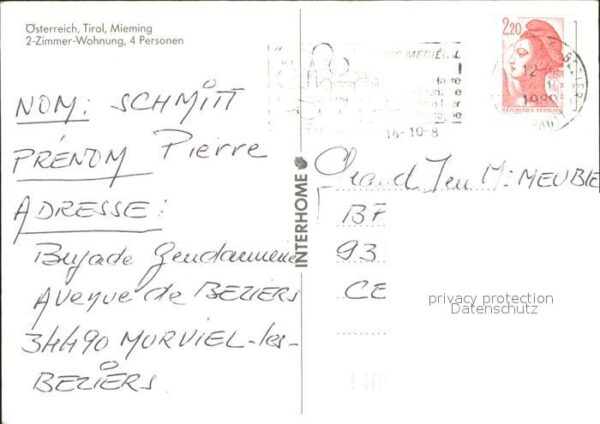 Österreich, Tirol, Mieming
2-Zimmer-Wohnung, 4 Personen
NOM: SCHMITT
PRÉNOM Pierre
ADRESSE:
Brigade Gendarmerie
Avenue de BEZIERS
34490 MURVIEL-les-
BEZIERS
INTERHOME
MEDIEVAL
14-10-8
2,20
REPUBLIQUE FRANÇAISE
12
198
BEZIER
Grand Jeu M: MEUBLE
93
CE
privacy protection
Datenschutz